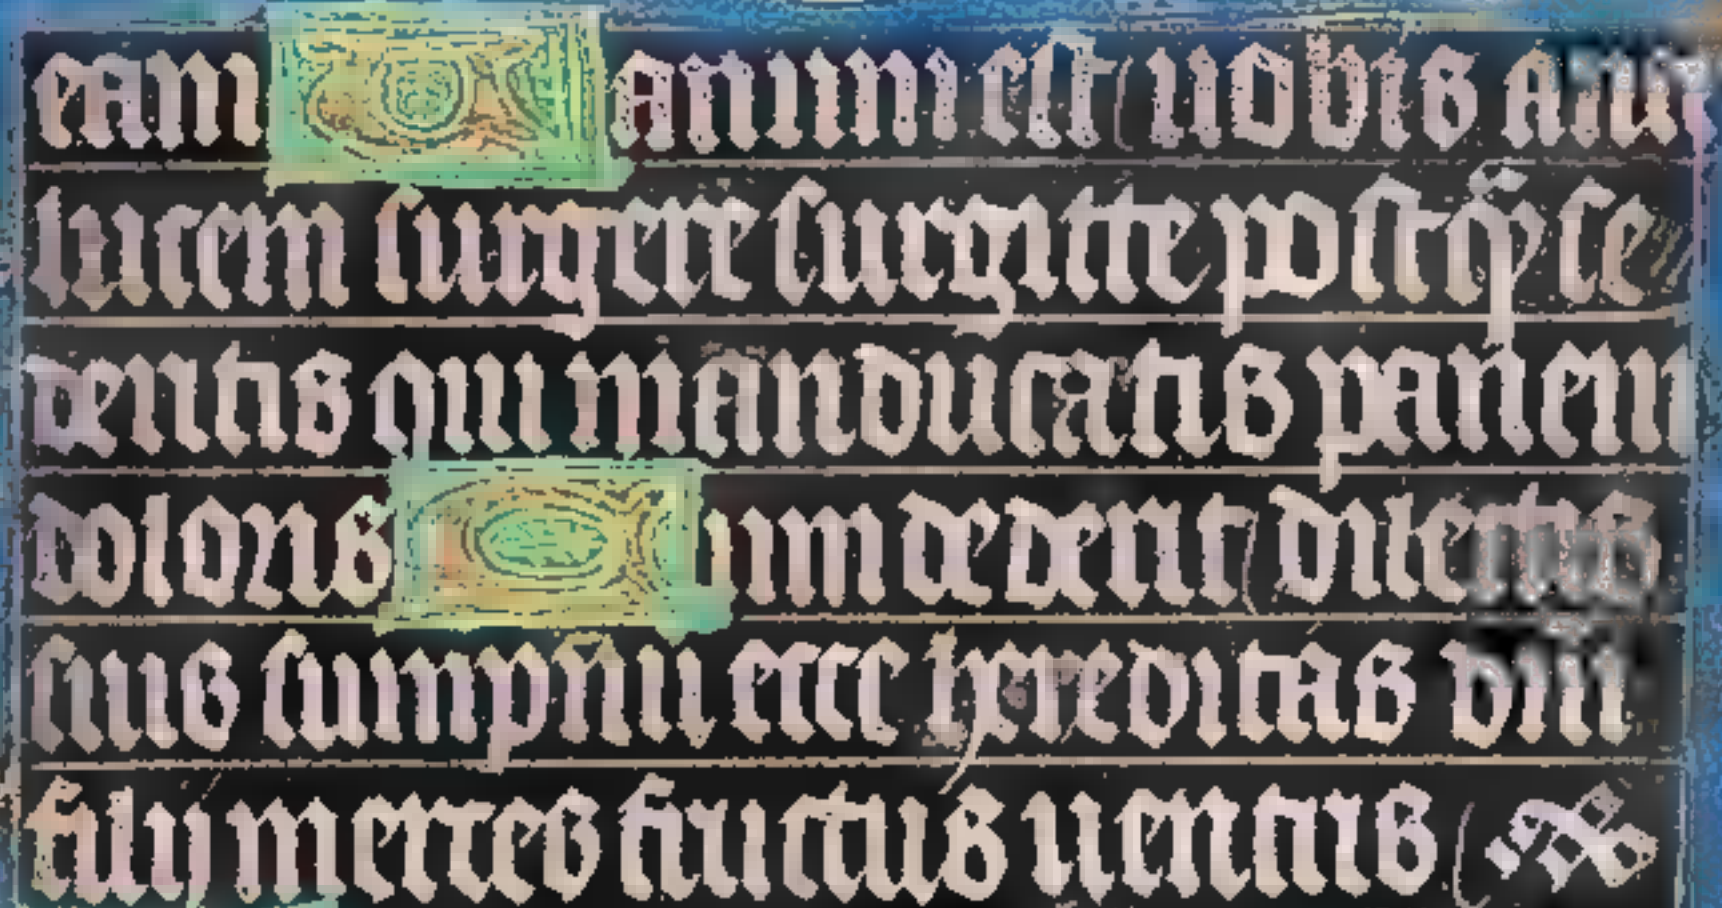 eam uanum est uobis ante
lucem surgere surgite postq̃ se
deritis qui manducatis panem
doloris Cum dederit dilectis
suis sumpnu ecce hereditas dni
filij merces fructus uentris